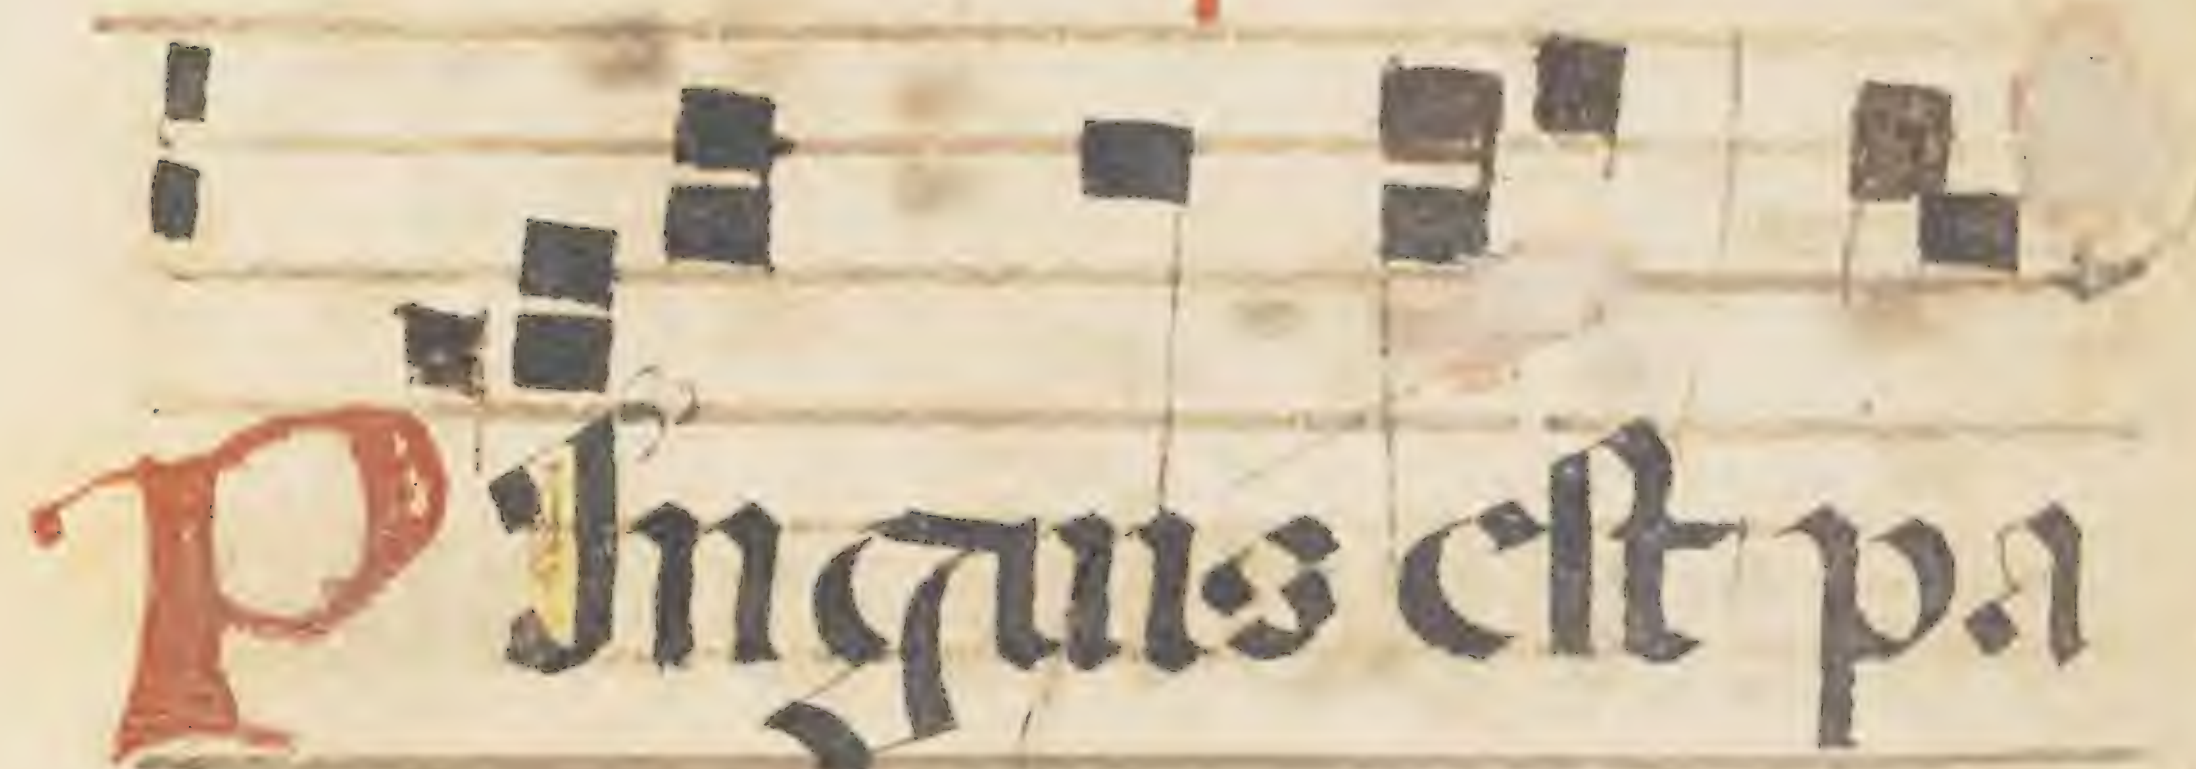 PInguis est pa